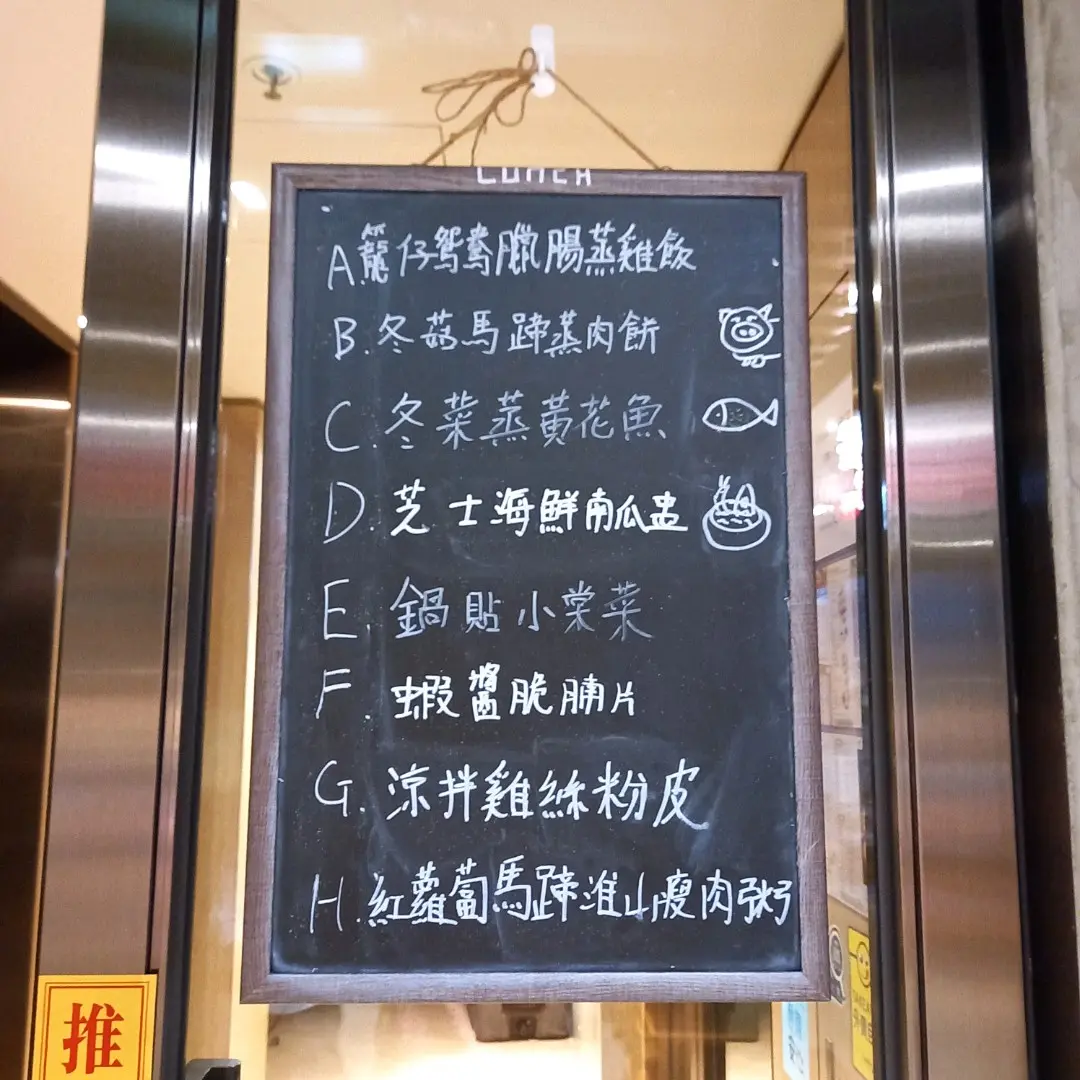 LUNCH
A.籠仔鴛鴦臘腸蒸雞飯
B.冬菇馬蹄蒸肉餅
C.冬菜蒸黃花魚
D.芝士海鮮南瓜盅
E.鍋貼小棠菜
F.蝦醬脆腩片
G.涼拌雞絲粉皮
H.紅蘿蔔馬蹄淮山瘦肉粥
推